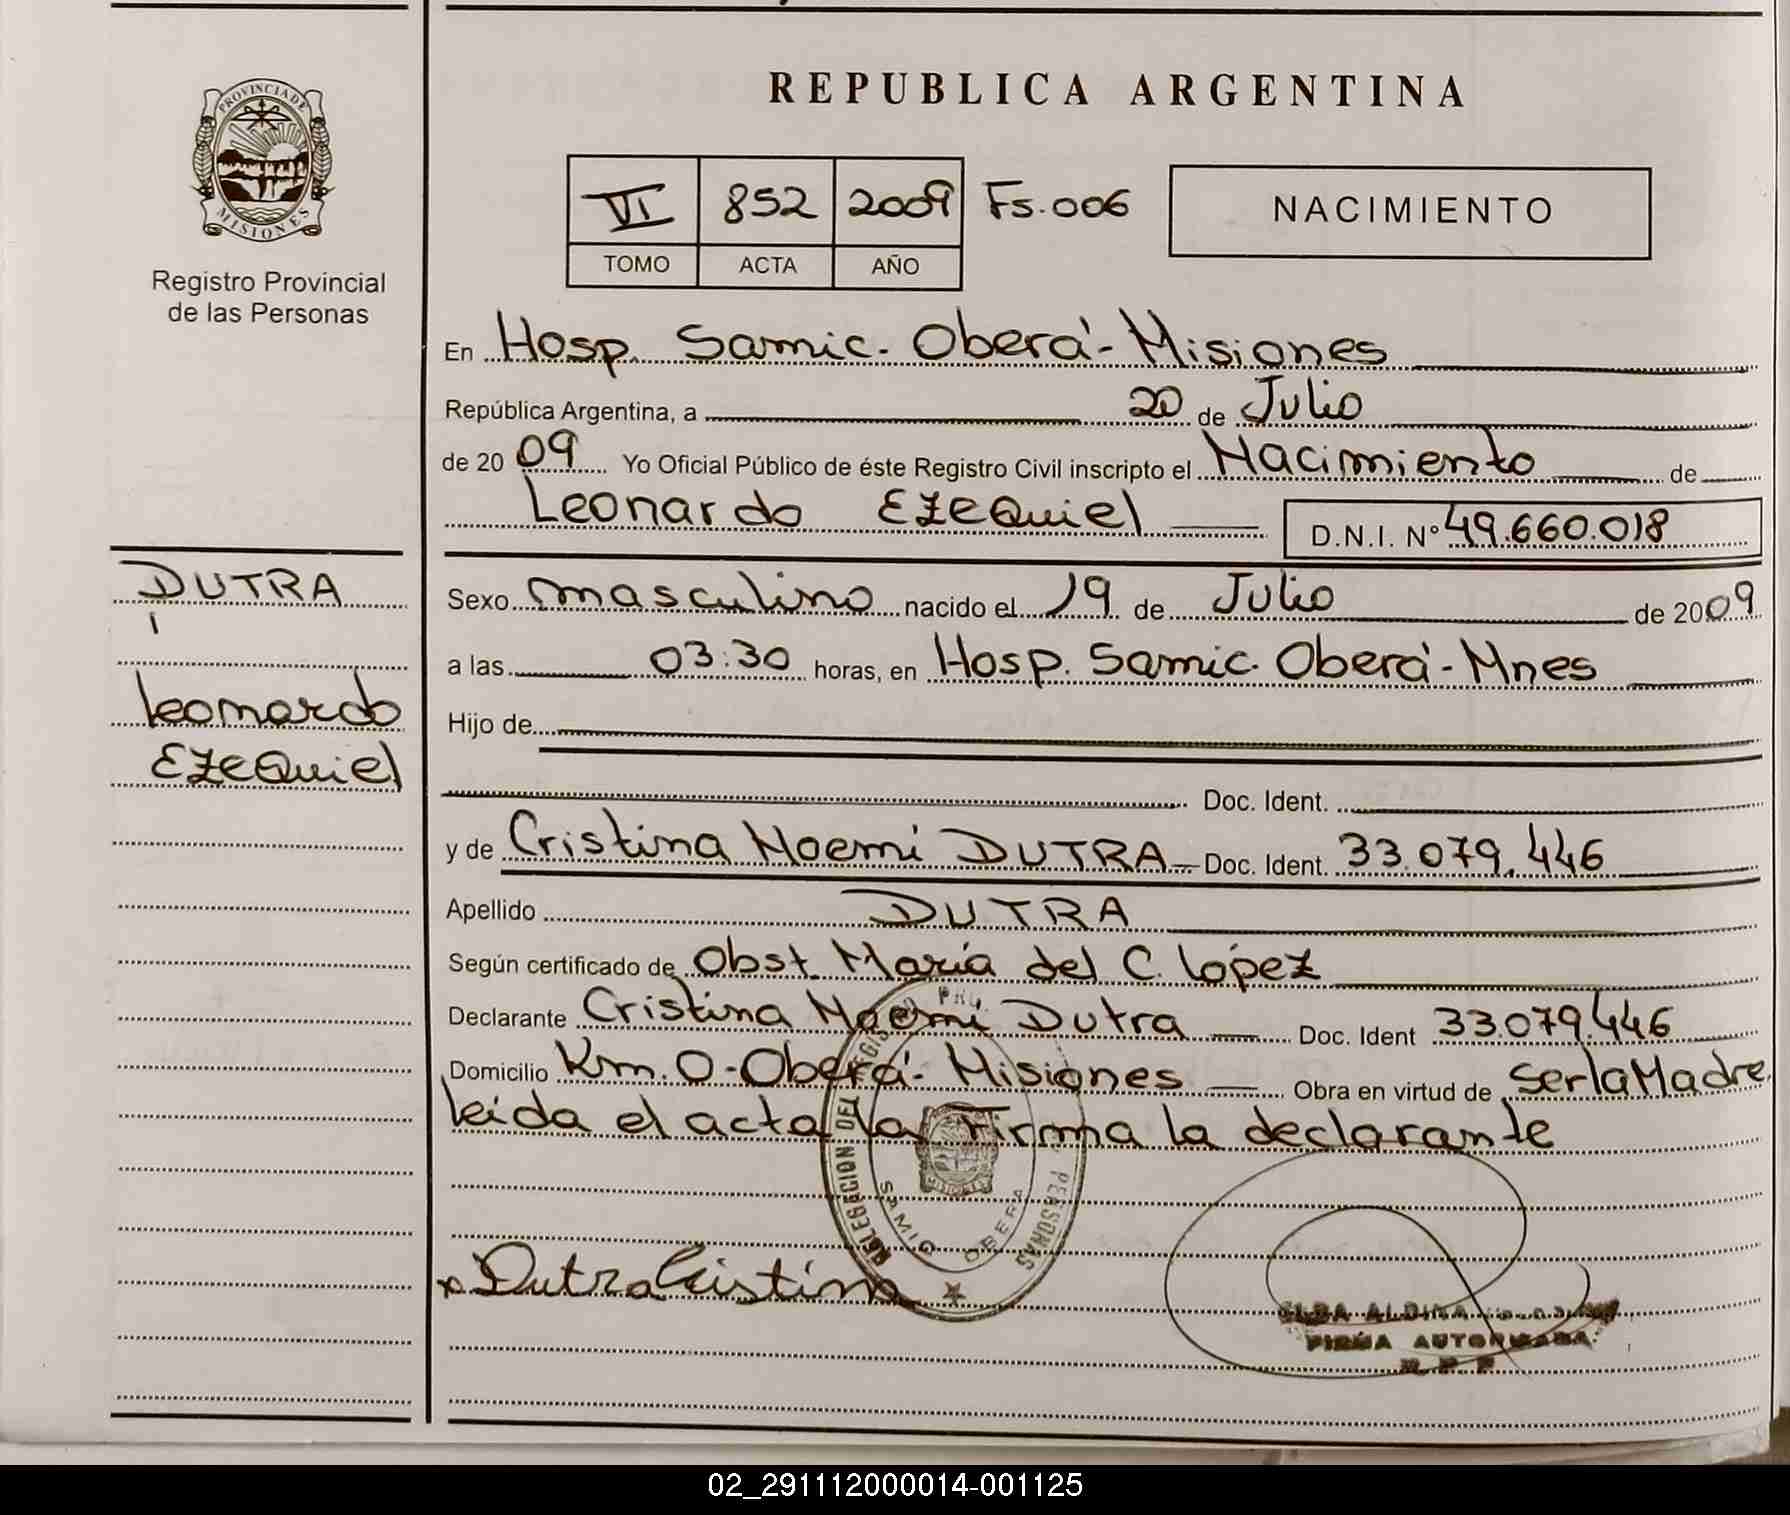 REPUBLICA ARGENTINA
PROVINCIA DE MISIONES
Registro Provincial
de las Personas
VI 852 2009 Fs. 006
TOMO ACTA AÑO
NACIMIENTO
En Hosp. Samic. Oberá - Misiones
República Argentina, a 20 de Julio
de 2009 Yo Oficial Público de éste Registro Civil inscripto el Nacimiento de
Leonardo Ezequiel D.N.I. Nº 49.660.018
DUTRA
Leonardo
Ezequiel
Sexo masculino nacido el 19 de Julio de 2009
a las 03:30 horas, en Hosp. Samic. Oberá - Mnes
Hijo de
Doc. Ident.
y de Cristina Noemi DUTRA Doc. Ident. 33.079.446
Apellido DUTRA
Según certificado de Obst. María del C. López
Declarante Cristina Noemi Dutra Doc. Ident 33.079.446
Domicilio Km. 0 - Oberá - Misiones Obra en virtud de ser la Madre
leida el acta la Firma la declarante
DELEGACION DEL REGIS PERSONAS
SAMIC OBERA
Dutra Cristina
FIRMA AUTORIZADA
02_291112000014-001125